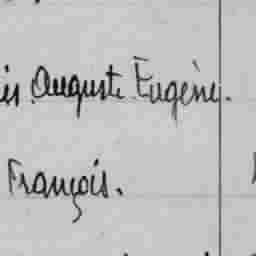 Auguste Eugène.
François.